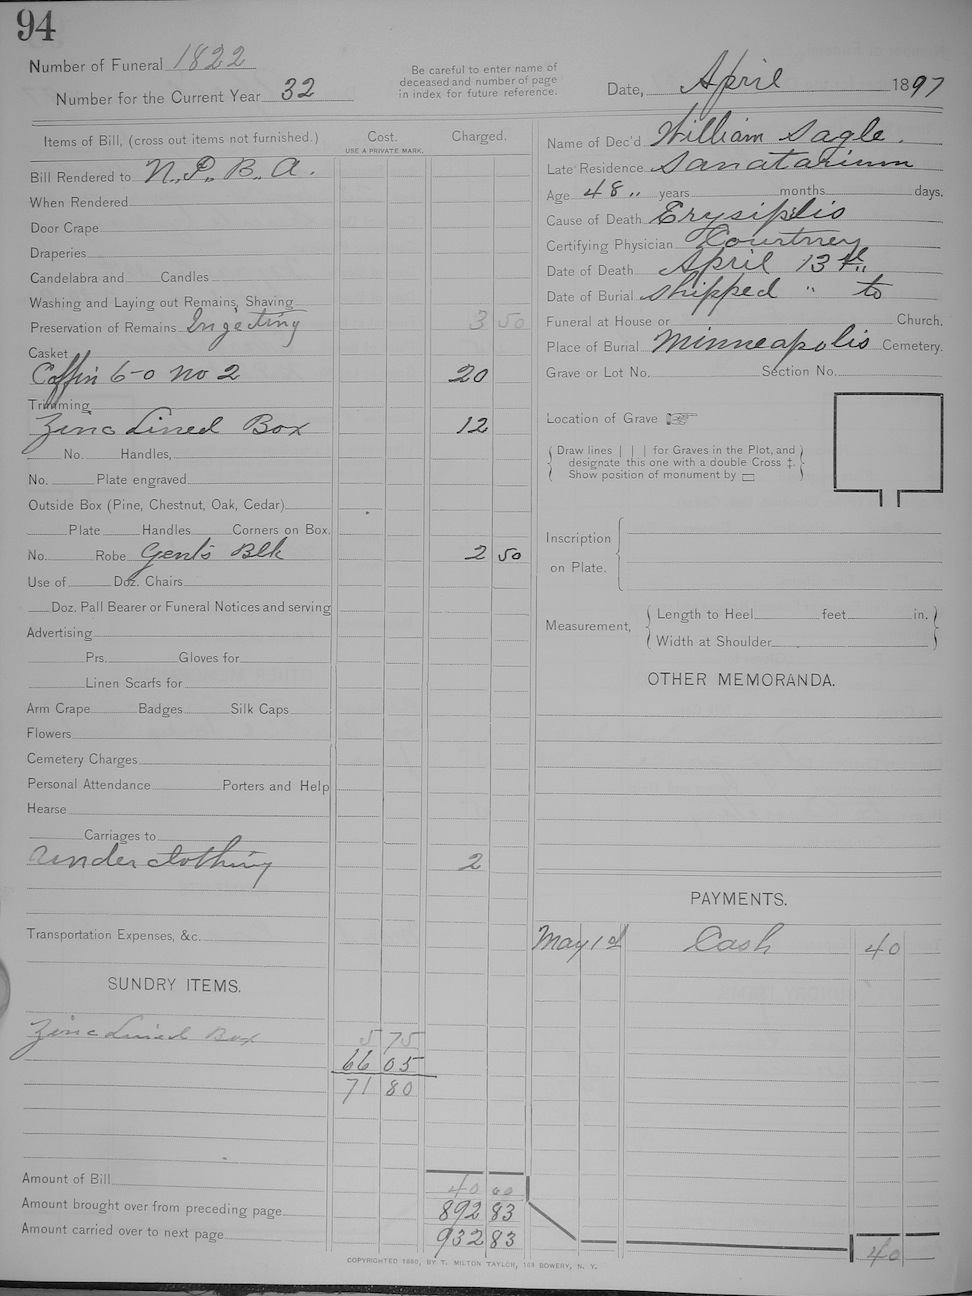 94
Number of Funeral 1822
Number for the Current Year 32
Be careful to enter name of
deceased and number of page
in index for future reference.
Date, April 1897
Items of Bill, (cross out items not furnished.) Cost. Charged.
USE A PRIVATE MARK.
Bill Rendered to N.P.B.A.
When Rendered
Door Crape
Draperies
Candelabra and Candles
Washing and Laying out Remains, Shaving
Preservation of Remains Ingecting 3 50
Casket
Coffin 6-0 No 2 20
Trimming
Zinc Lined Box 12
No. Handles,
No. Plate engraved
Outside Box (Pine, Chestnut, Oak, Cedar)
Plate Handles Corners on Box.
No. Robe Gents Blk 2 50
Use of Doz. Chairs
Doz. Pall Bearer or Funeral Notices and serving
Advertising
Prs. Gloves for
Linen Scarfs for
Arm Crape Badges Silk Caps
Flowers
Cemetery Charges
Personal Attendance Porters and Help
Hearse
Carriages to
Under clothing 2
Transportation Expenses, &c.
SUNDRY ITEMS.
Zinc Lined Box 5 75
66 05
71 80
Amount of Bill 40 00
Amount brought over from preceding page 892 83
Amount carried over to next page 932 83
Name of Dec'd William Sagle.
Late Residence Sanatarium
Age 48 " years months days.
Cause of Death Erysiplis
Certifying Physician Courtney
Date of Death April 13th
Date of Burial shipped " to
Funeral at House or Church.
Place of Burial Minneapolis Cemetery.
Grave or Lot No. Section No.
Location of Grave ☞
Draw lines | | | for Graves in the Plot, and
designate this one with a double Cross ‡.
Show position of monument by ▭
Inscription
on Plate.
Measurement, Length to Heel feet in.
Width at Shoulder
OTHER MEMORANDA.
PAYMENTS.
May 1st Cash 40
40
COPYRIGHTED 1880, BY T. MILTON TAYLOR, 163 BOWERY, N. Y.